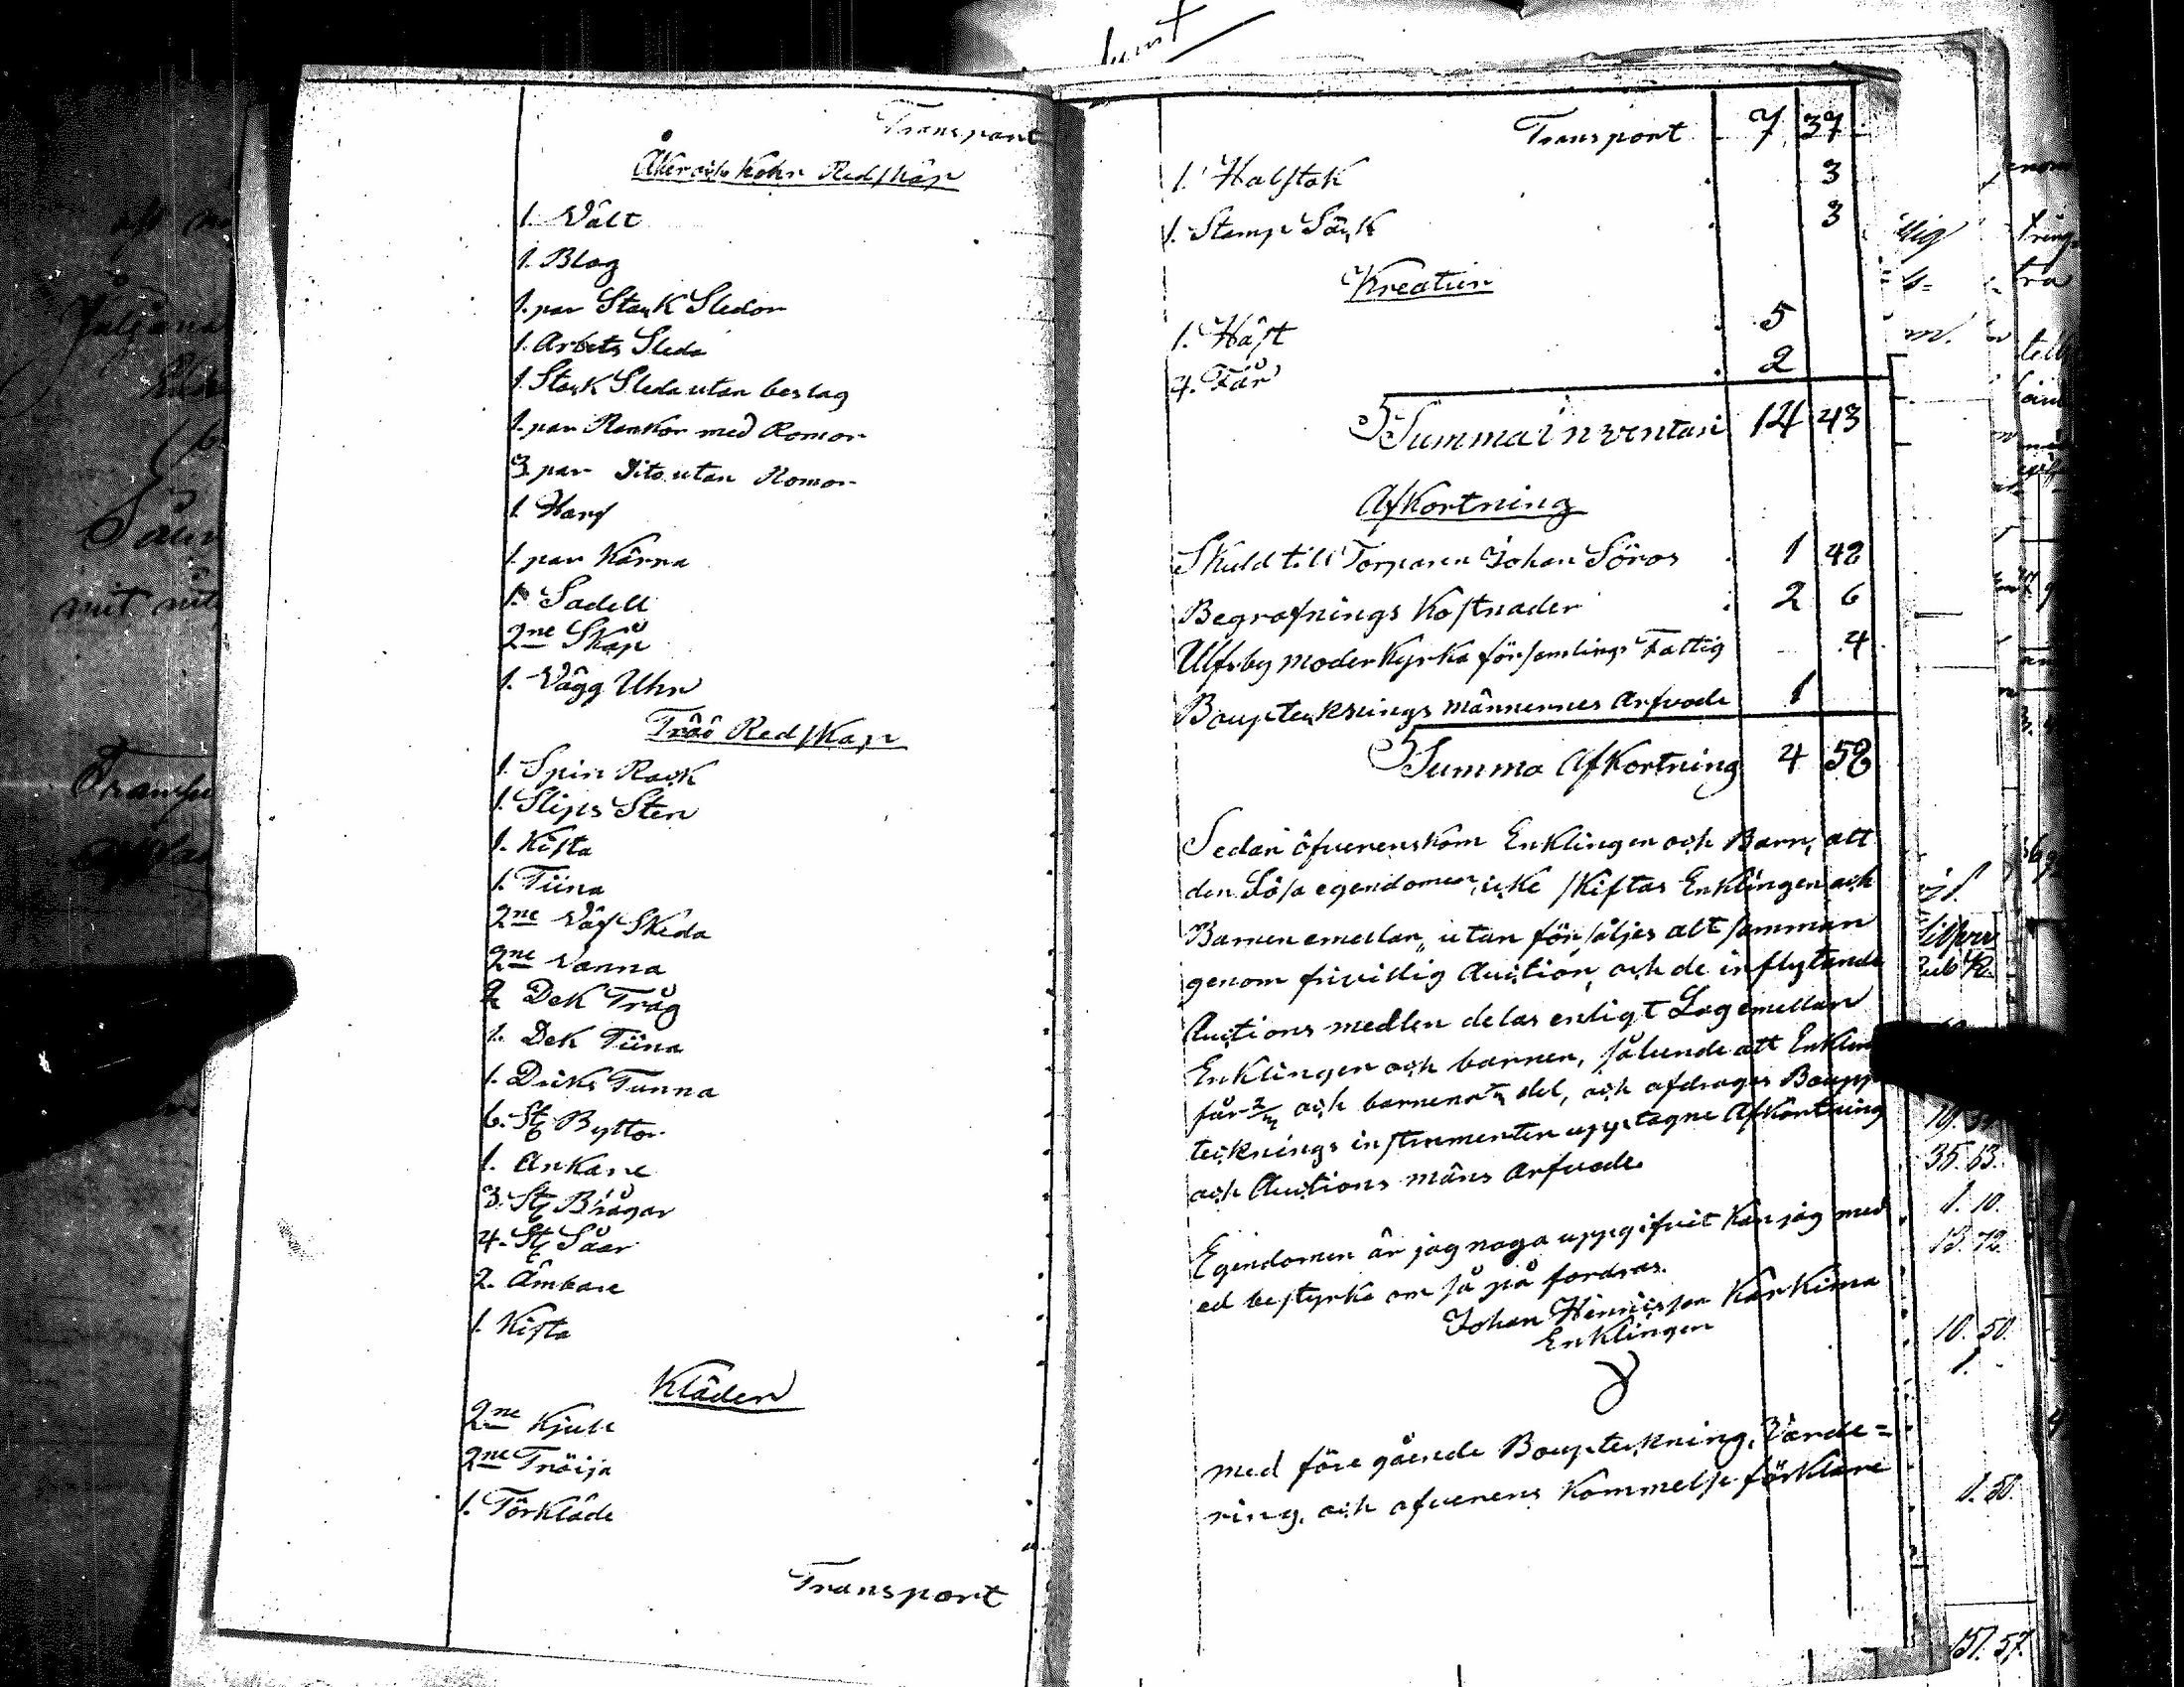 Transport
Åker och Köhr Redskap
1. Vält
1. Blog
1. par Stack Sledor
1. Arbets Sleda
1. Stack Sleda utan beslag
1. par Rankor med Romor
3. par Dito utan Romor
1. Harf
1. par Kärra
1. Sadell
2ne Skåp
1. Vägg Uhr
Trää Redskap
1. Spin Rock
1. Slips Sten
1. Kista
1. Tiina
2ne Väf Skeda
2ne Vanna
2 Dek Tråg
1. Dek Tiina
1. Dricks Tunna
6. St Byttor
1. Ankare
3. St Bragar
4. St Såar
2. Ämbare
1. Kista
Kläder
2ne Kjule
2ne Tröija
1. Förkläde
Transport
Transport 7 37
1. Halstok 3
1. Stamp Säck 3
Kreatur
1. Häst 5
4. Får 2
Summa inventari 14 43
Afkortning
Skuld till Torparen Johan Söros 1 48
Begrafnings Kostnader 2 6
Ulfsby moder Kyrka församlings Fattig 4
Boupteknings männernes Arfvode 1
Summa Afkortning 4 58
Sedan öfverenskom Enklingen och Barn, att
den Lösa egendomen icke skiftas Enklingen och
Barnen emellan, utan försäljes alt samman
genom frivillig Auction, och de inflytande
Auctions medlen delas enligt Lag emellan
Enklingen och barnen, sålunde att Enklin
får 2/3 och barnena 1/3 del, och afdrages Boupp
tecknings instrumenten upptagne Afkortning
och Auctions mäns Arfvode
Egendomen är jag noga uppgifvit kan jag med
ed bestyrka om så på fordras.
Johan Henricsson Karkima
Enklingen
med före gående Boupteckning, Värde=
ring, och öfverens kommelse förklare
35. 63.
1. 10.
13. 72.
10. 50.
1.
1. 50.
151. 57.